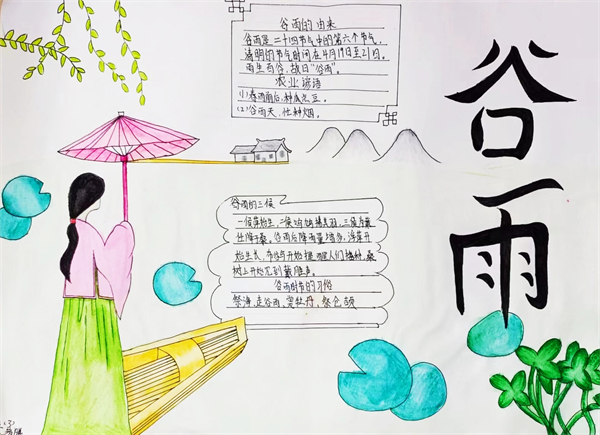 谷雨的由来
谷雨是二十四节气中的第六个节气,
清明的节气时间在4月19日至21日。
雨生百谷,故曰"谷雨"。
农业谚语
(1)春雨雨后,种瓜点豆。
(2)谷雨天,忙种烟。
谷雨
谷雨的三候
一候萍始生,二候鸣鸠拂其羽,三候为戴
任降于桑。谷雨后降雨量增多,浮萍开
始生长,布谷鸟开始提醒人们播种,桑
树上开始见到戴胜鸟。
谷雨时节的习俗
祭海,走谷雨,赏牡丹,祭仓颉